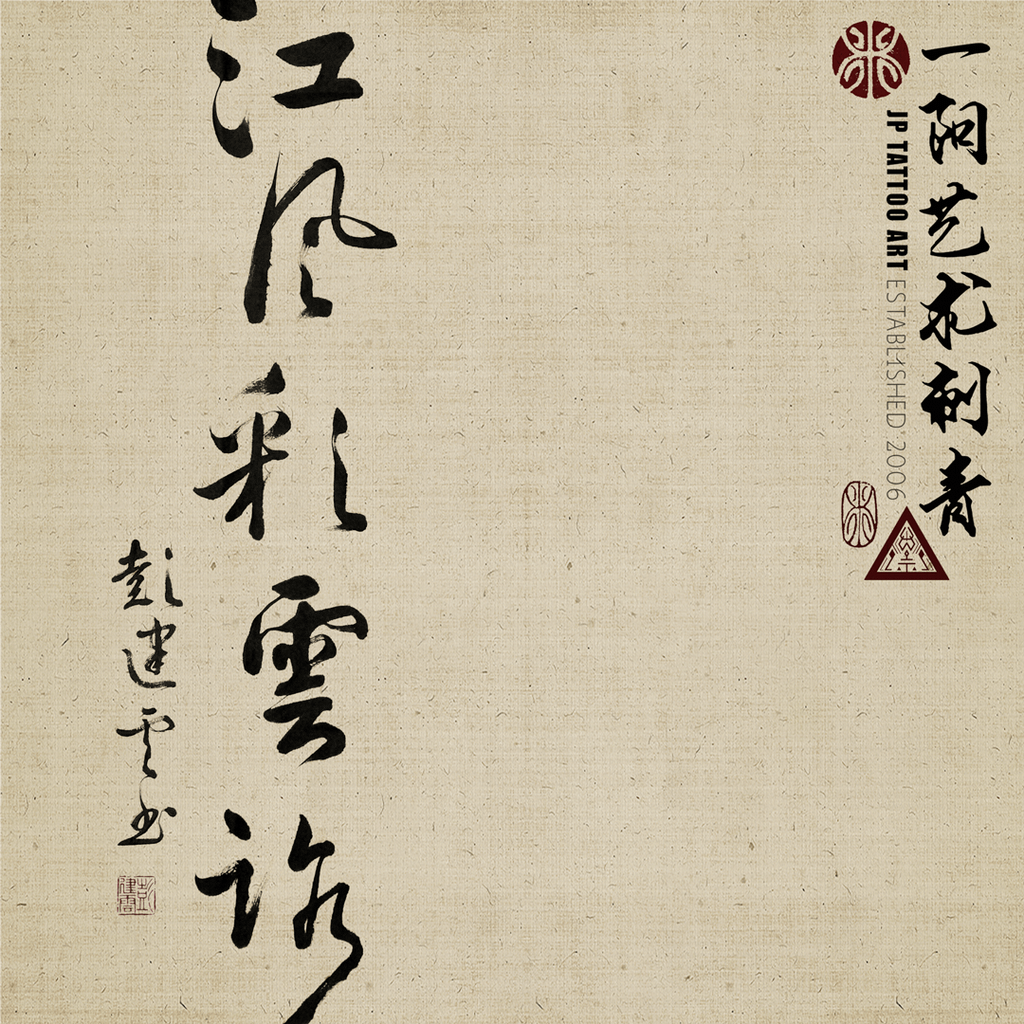 一阳艺术刺青
JP TATTOO ART ESTABLISHED 2006
江风彩雲
彭建云书
彭建雲